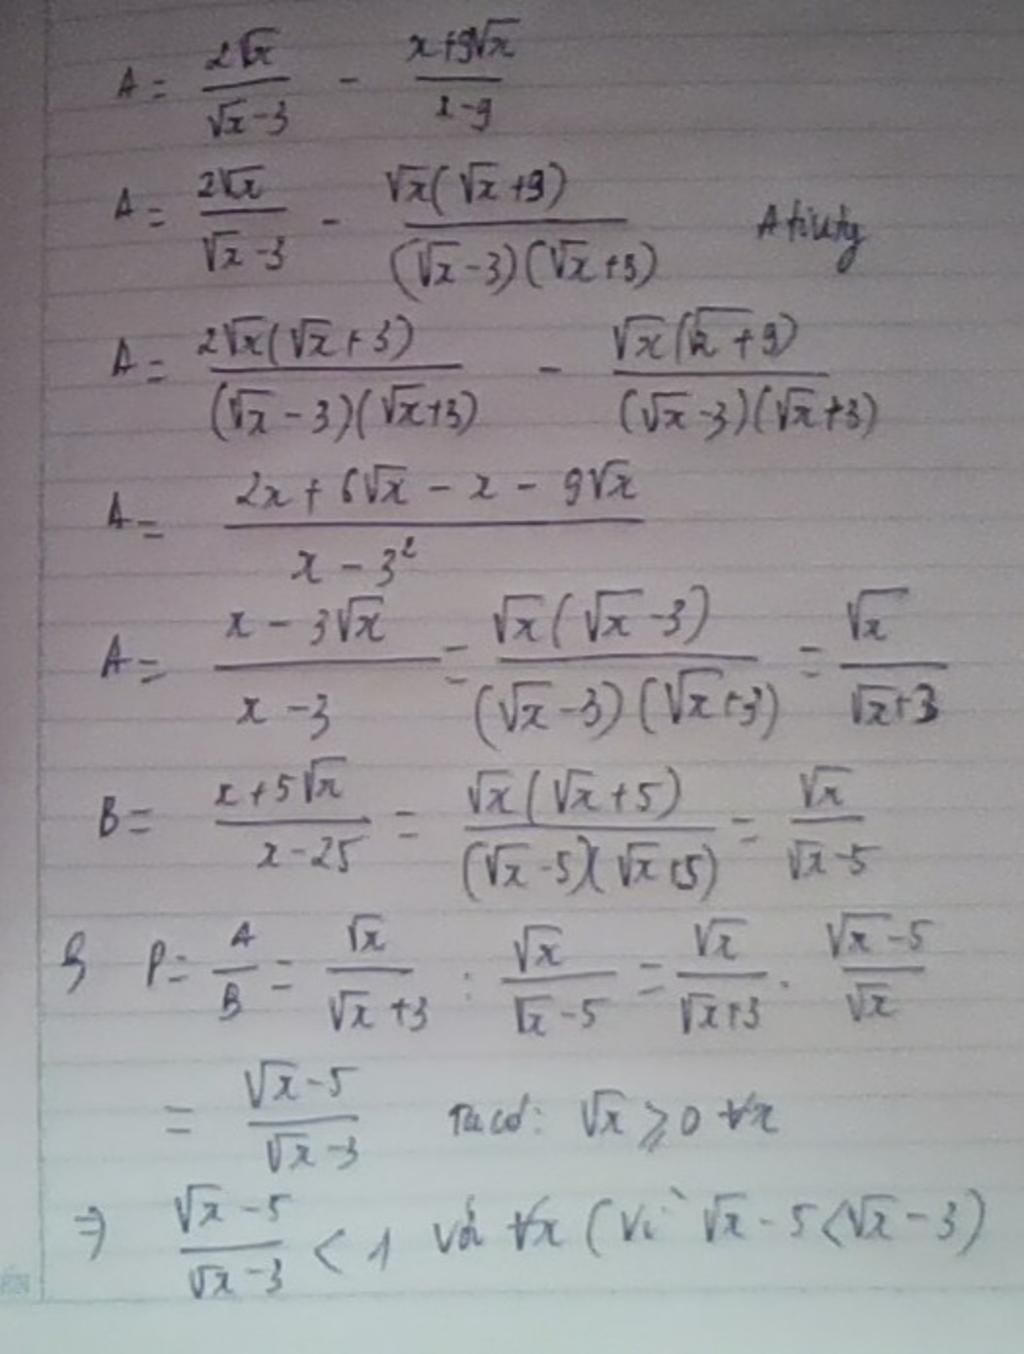 A = 2√x / (√x - 3) - (x + 9√x) / (x - 9)
A = 2√x / (√x - 3) - √x(√x + 9) / ((√x - 3)(√x + 3))
A = 2√x(√x + 3) / ((√x - 3)(√x + 3)) - √x(√x + 9) / ((√x - 3)(√x + 3))
A = (2x + 6√x - x - 9√x) / (x - 3²)
A = (x - 3√x) / (x - 3) = √x(√x - 3) / ((√x - 3)(√x + 3)) = √x / (√x + 3)
B = (x + 5√x) / (x - 25) = √x(√x + 5) / ((√x - 5)(√x + 5)) = √x / (√x - 5)
P = A / B = √x / (√x + 3) : √x / (√x - 5) = √x / (√x + 3) . (√x - 5) / √x
= (√x - 5) / (√x - 3) Ta có: √x ⩾ 0 ∀x
⇒ (√x - 5) / (√x - 3) < 1 với ∀x (vì √x - 5 < √x - 3)